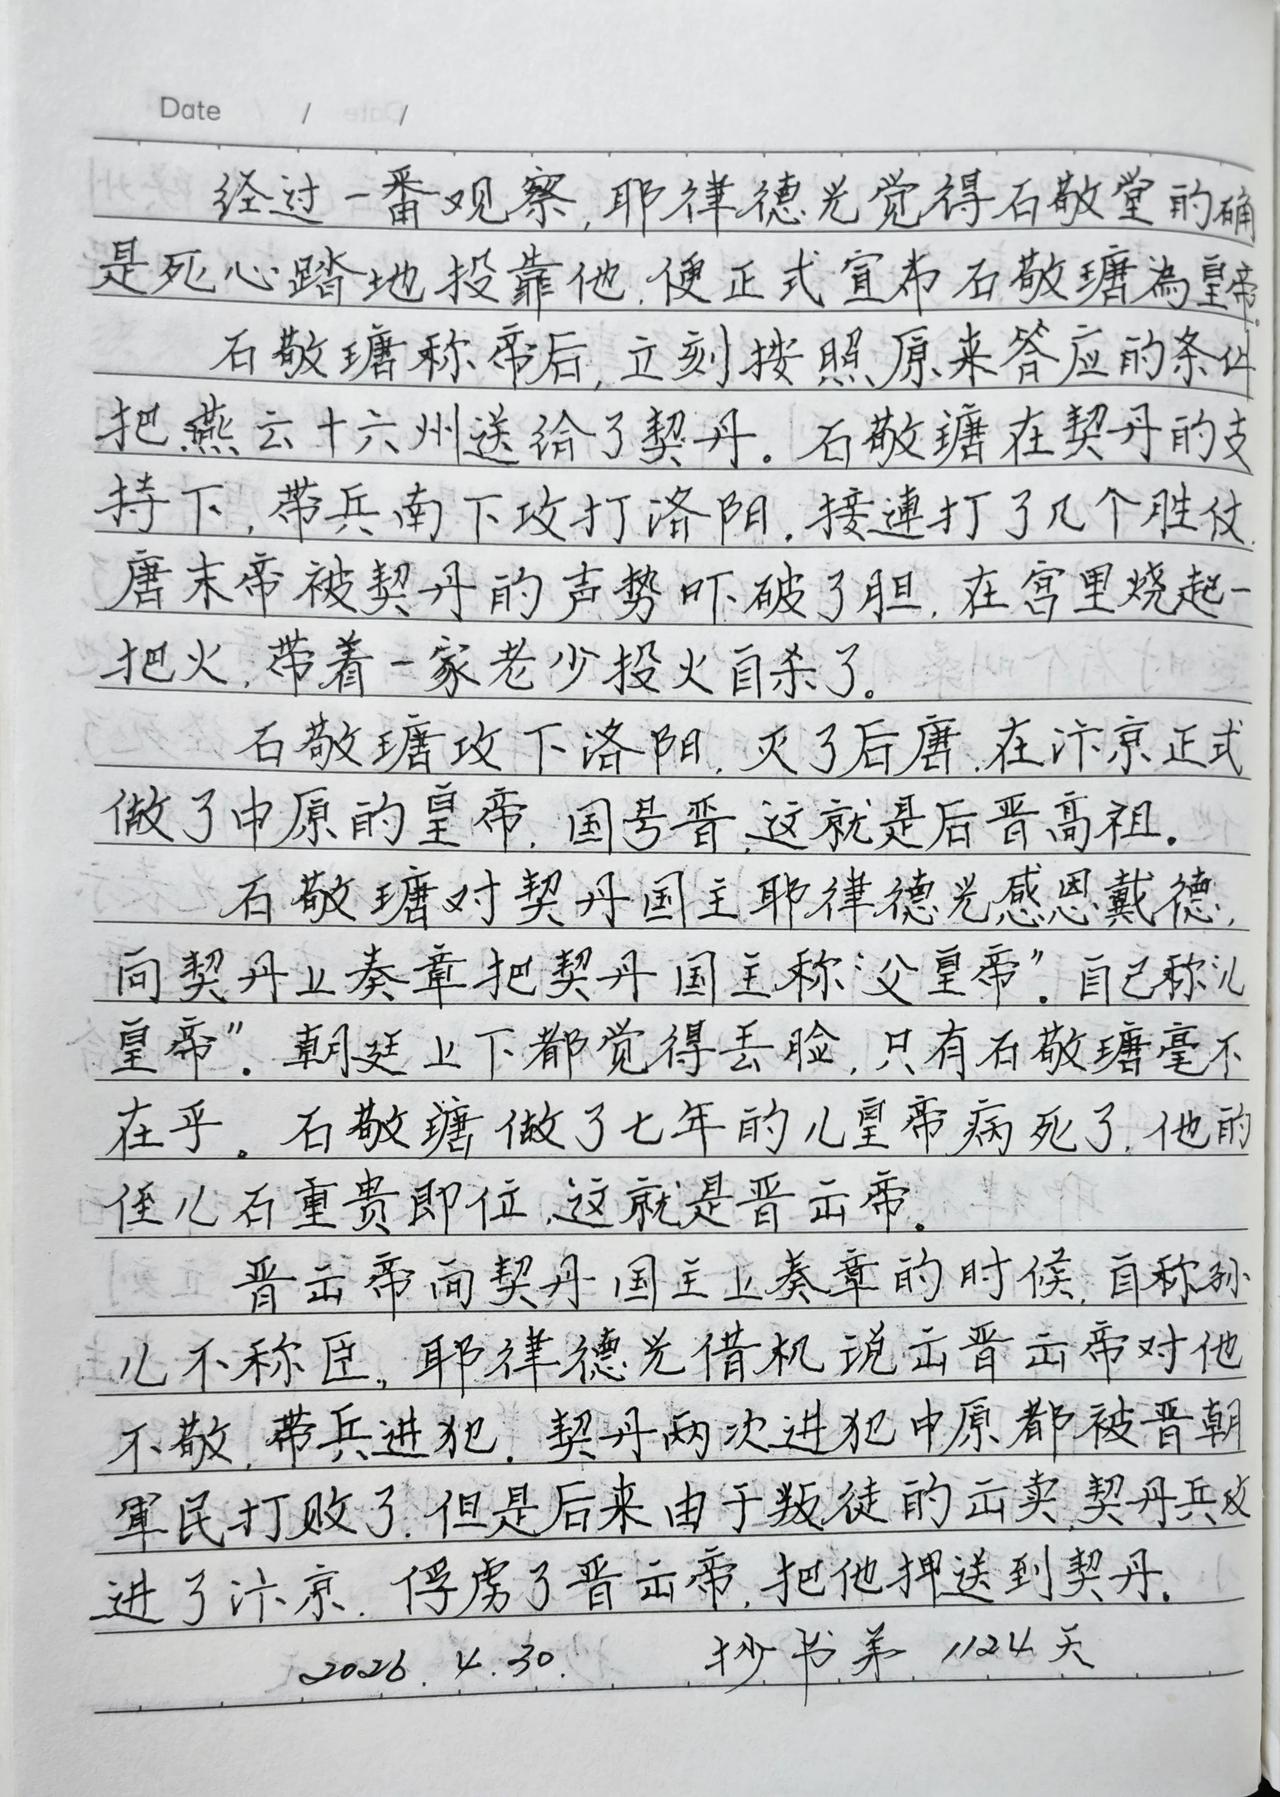 Date / /
经过一番观察,耶律德光觉得石敬堂的确
是死心踏地投靠他,便正式宣布石敬瑭為皇帝。
石敬瑭称帝后,立刻按照原来答应的条件
把燕云十六州送给了契丹。石敬瑭在契丹的支
持下,带兵南下攻打洛阳,接連打了几个胜仗,
唐末帝被契丹的声势吓破了胆,在宫里烧起一
把火,带着一家老少投火自杀了。
石敬瑭攻下洛阳,灭了后唐,在汴京正式
做了中原的皇帝,国号晋,这就是后晋高祖。
石敬瑭对契丹国主耶律德光感恩戴德,
向契丹上奏章把契丹国主称“父皇帝”。自己称“儿
皇帝”。朝廷上下都觉得丢脸,只有石敬瑭毫不
在乎。石敬瑭做了七年的儿皇帝病死了,他的
侄儿石重贵即位,这就是晋出帝。
晋出帝向契丹国主上奏章的时候,自称孙
儿不称臣,耶律德光借机说出晋出帝对他
不敬,带兵进犯。契丹两次进犯中原都被晋朝
军民打败了,但是后来由于叛徒的出卖,契丹兵攻
进了汴京,俘虏了晋出帝,把他押送到契丹。
2026.4.30. 抄书第1124天